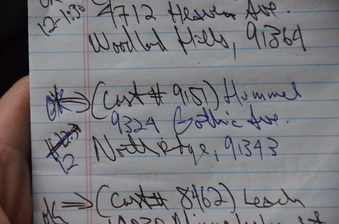 12-1:30 4712 Ave.
Woodland Hills, 91364
ok → (Cust# 9151) Hummel
9324 Gothic Ave.
12 Northridge, 91343
ok ⇒ (Cust# 8462) Leach